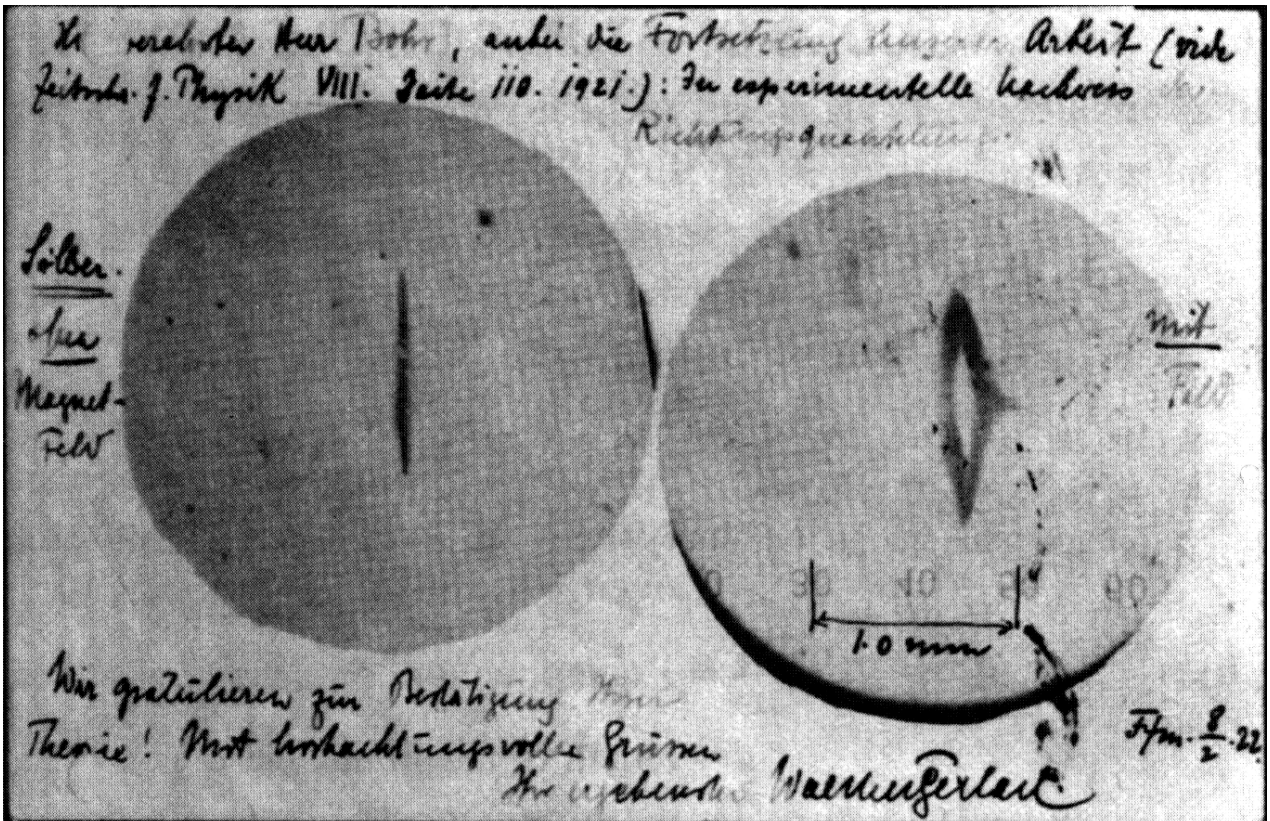 verehrter Herr Bohr, anbei die Fortsetzung unserer Arbeit (vide
Zeitschr. f. Physik VIII. Seite 110. 1921.): Der experimentelle Nachweis der
Richtungsquantelung.
Silber.
ohne
Magnet-
Feld
mit
Feld
0 30 40 50 60
1.0 mm
Wir gratulieren zur Bestätigung Ihrer
Theorie! Mit hochachtungsvollen Grüssen
Ihr ergebenster Walther Gerlach.
F/m. 8/2.22.